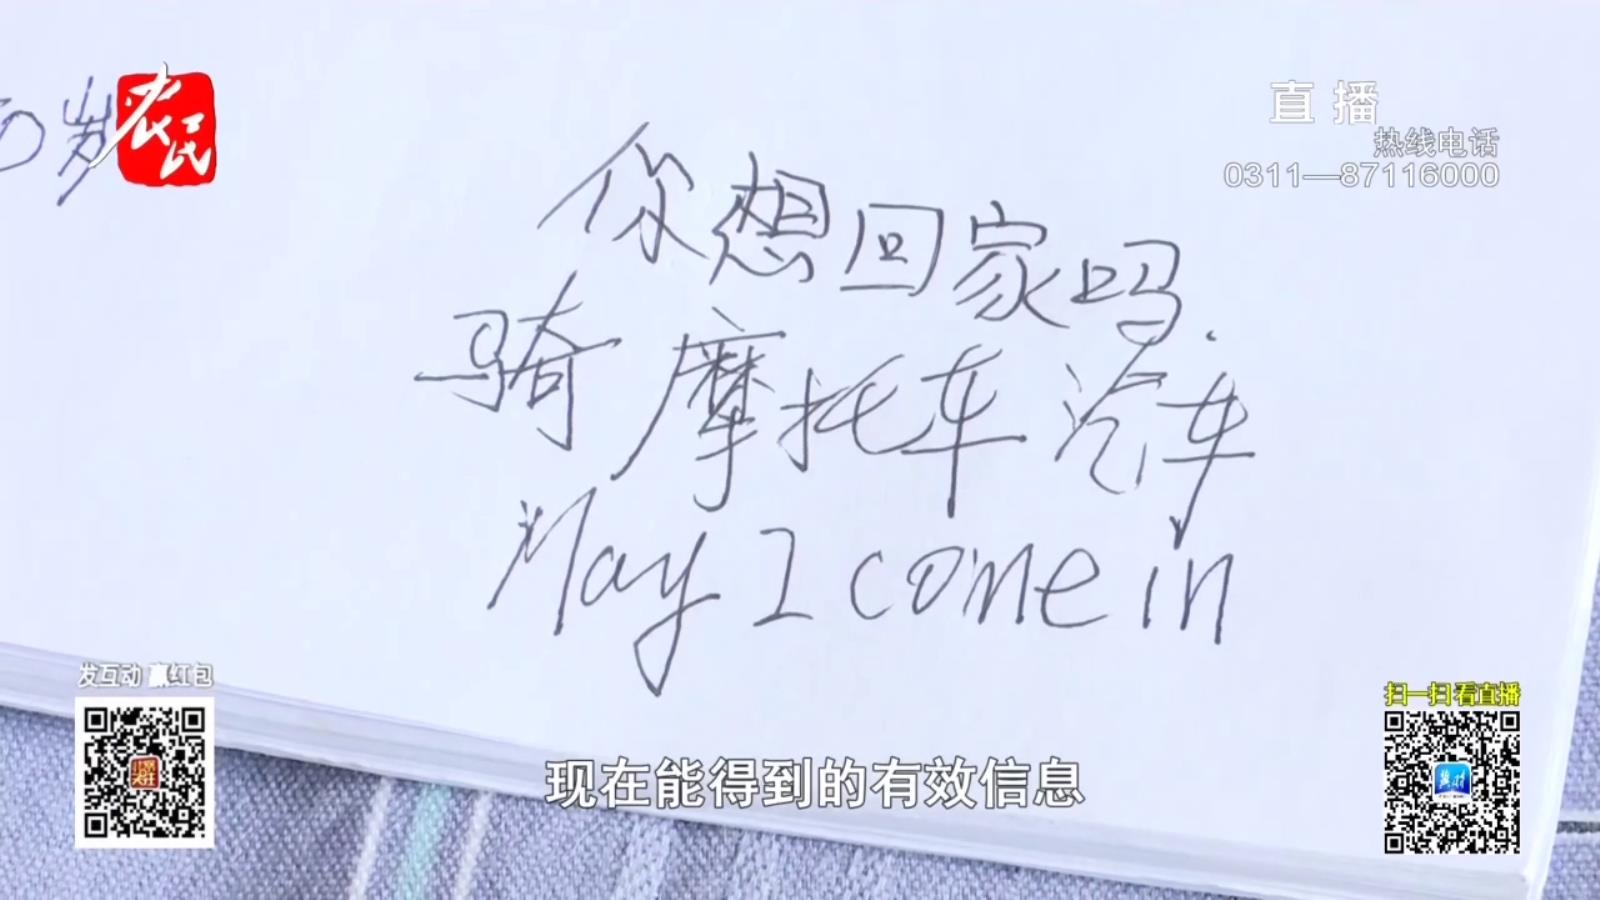 0岁
农民
直播
热线电话
0311—87116000
你想回家吗.
骑摩托车汽车
May I come in
发互动 赢红包
扫一扫 看直播
冀时
现在能得到的有效信息